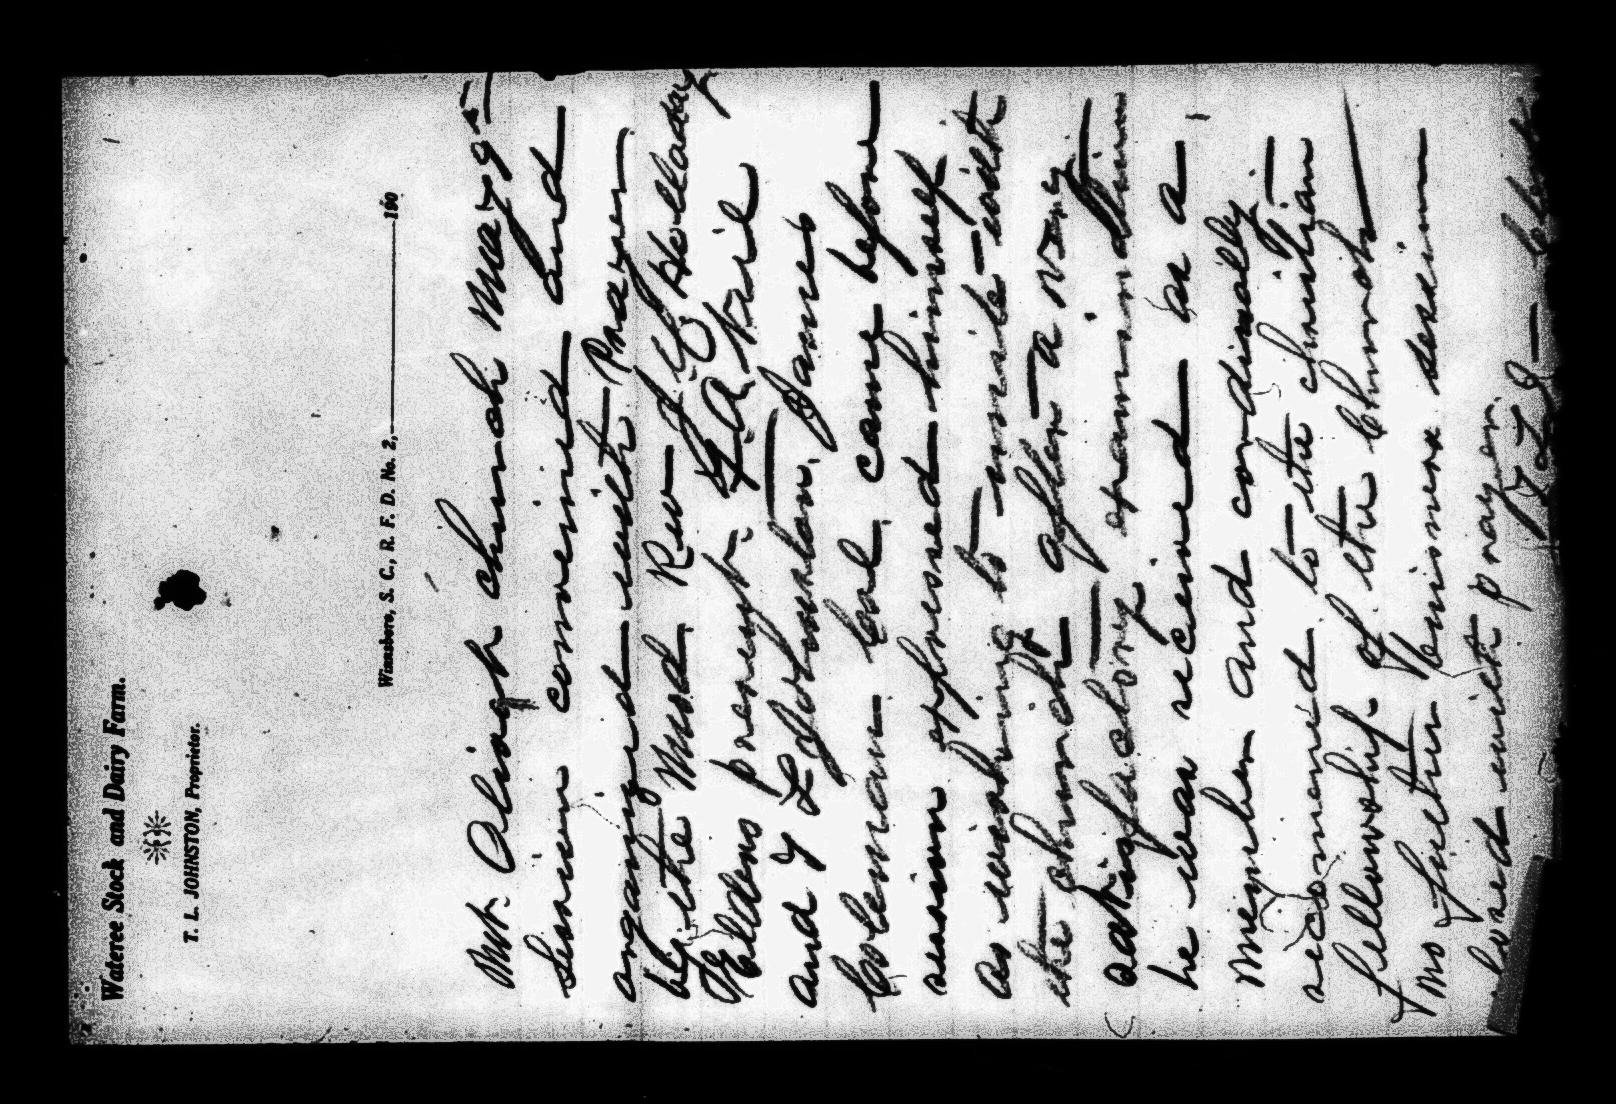 Wateree Stock and Dairy Farm.
T. L. JOHNSTON, Proprietor.
Winnsboro, S. C., R. F. D. No. 2, 190
Mt. Olivet church May 9th
Session convened and
organized with Prayer
by the Mod Rev J C Holladay
Elders present, H A Neil
and Y L Johnston, James
Coleman Col came before
session expressed himself
as wishing to unite with
the church after a very
satisfactory examination
he was received as a
member and cordially
recomend to the christian
fellowship of the church
no further business session
closed with prayer.
Y L J — Clerk